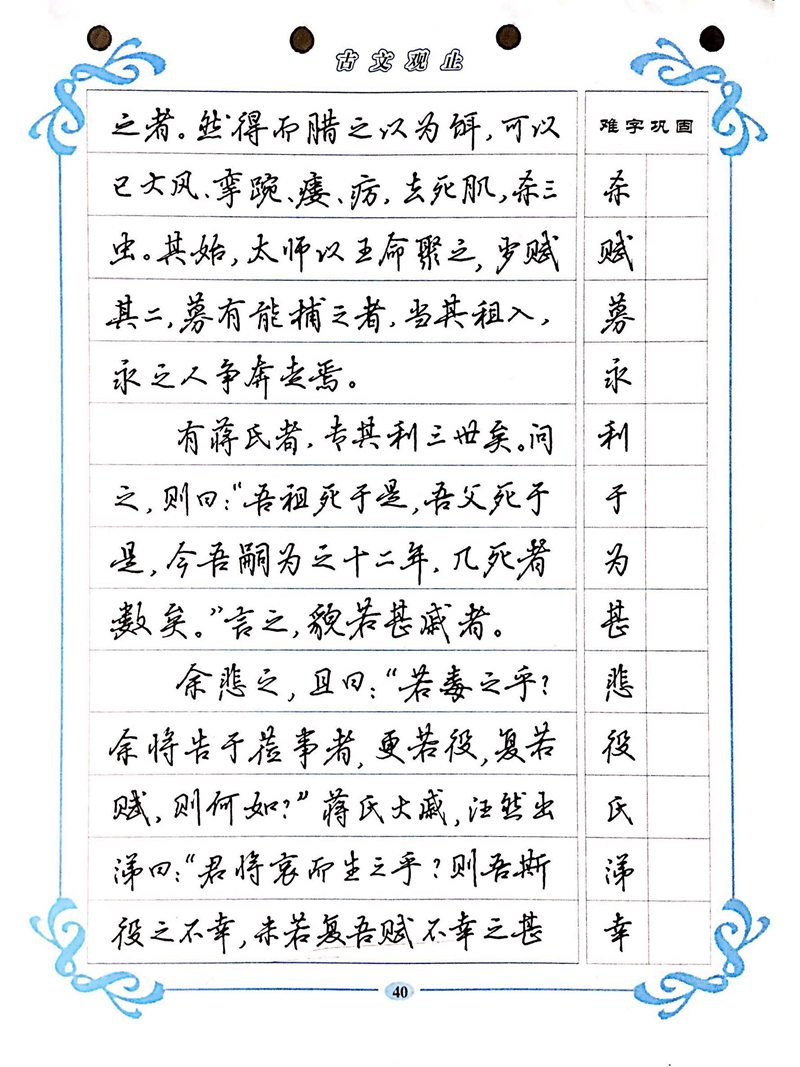 古文观止
之者。然得而腊之以为饵,可以
已大风、挛踠、瘘、疠,去死肌,杀三
虫。其始,太师以王命聚之,岁赋
其二,募有能捕之者,当其租入,
永之人争奔走焉。
有蒋氏者,专其利三世矣。问
之,则曰:“吾祖死于是,吾父死于
是,今吾嗣为之十二年,几死者
数矣。”言之,貌若甚戚者。
余悲之,且曰:“若毒之乎?
余将告于莅事者,更若役,复若
赋,则何如?”蒋氏大戚,汪然出
涕曰:“君将哀而生之乎?则吾斯
役之不幸,未若复吾赋不幸之甚
难字巩固
杀
赋
募
永
利
于
为
甚
悲
役
氏
涕
幸
40